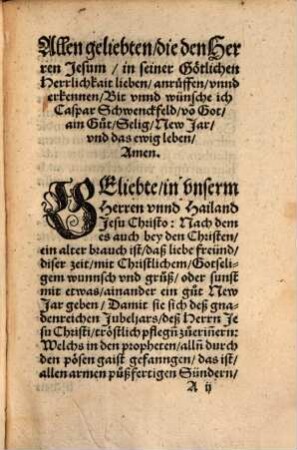 Allen geliebten/die den Her
ren Jesum/in seiner Götlichen
Herrlichkait lieben/anrüffen/vnnd
erkennen/Bit vnnd wünsche ich
Caspar Schwenckfeld/vō Got/
ain Gůt/Selig/New Jar/
vnd das ewig leben/
Amen.
GEliebte/in vnserm
Herren vnnd Hailand
Jesu Christo: Nach dem
es auch bey den Christen/
ein alter brauch ist/daß liebe freünd/
diser zeit/mit Christlichem/Gotseli-
gem wunnsch vnd grůß/oder sunst
mit etwas/ainander ein gůt New
Jar geben/Damit sie sich deß gna-
denreichen Jubeljars/deß Herrn Je
su Christi/tröstlich pflegñ zůeriñern:
Welchs in den propheten/allñ durch
den pösen gaist gefanngen/das ist/
allen armen půßfertigen Sündern/
A ij